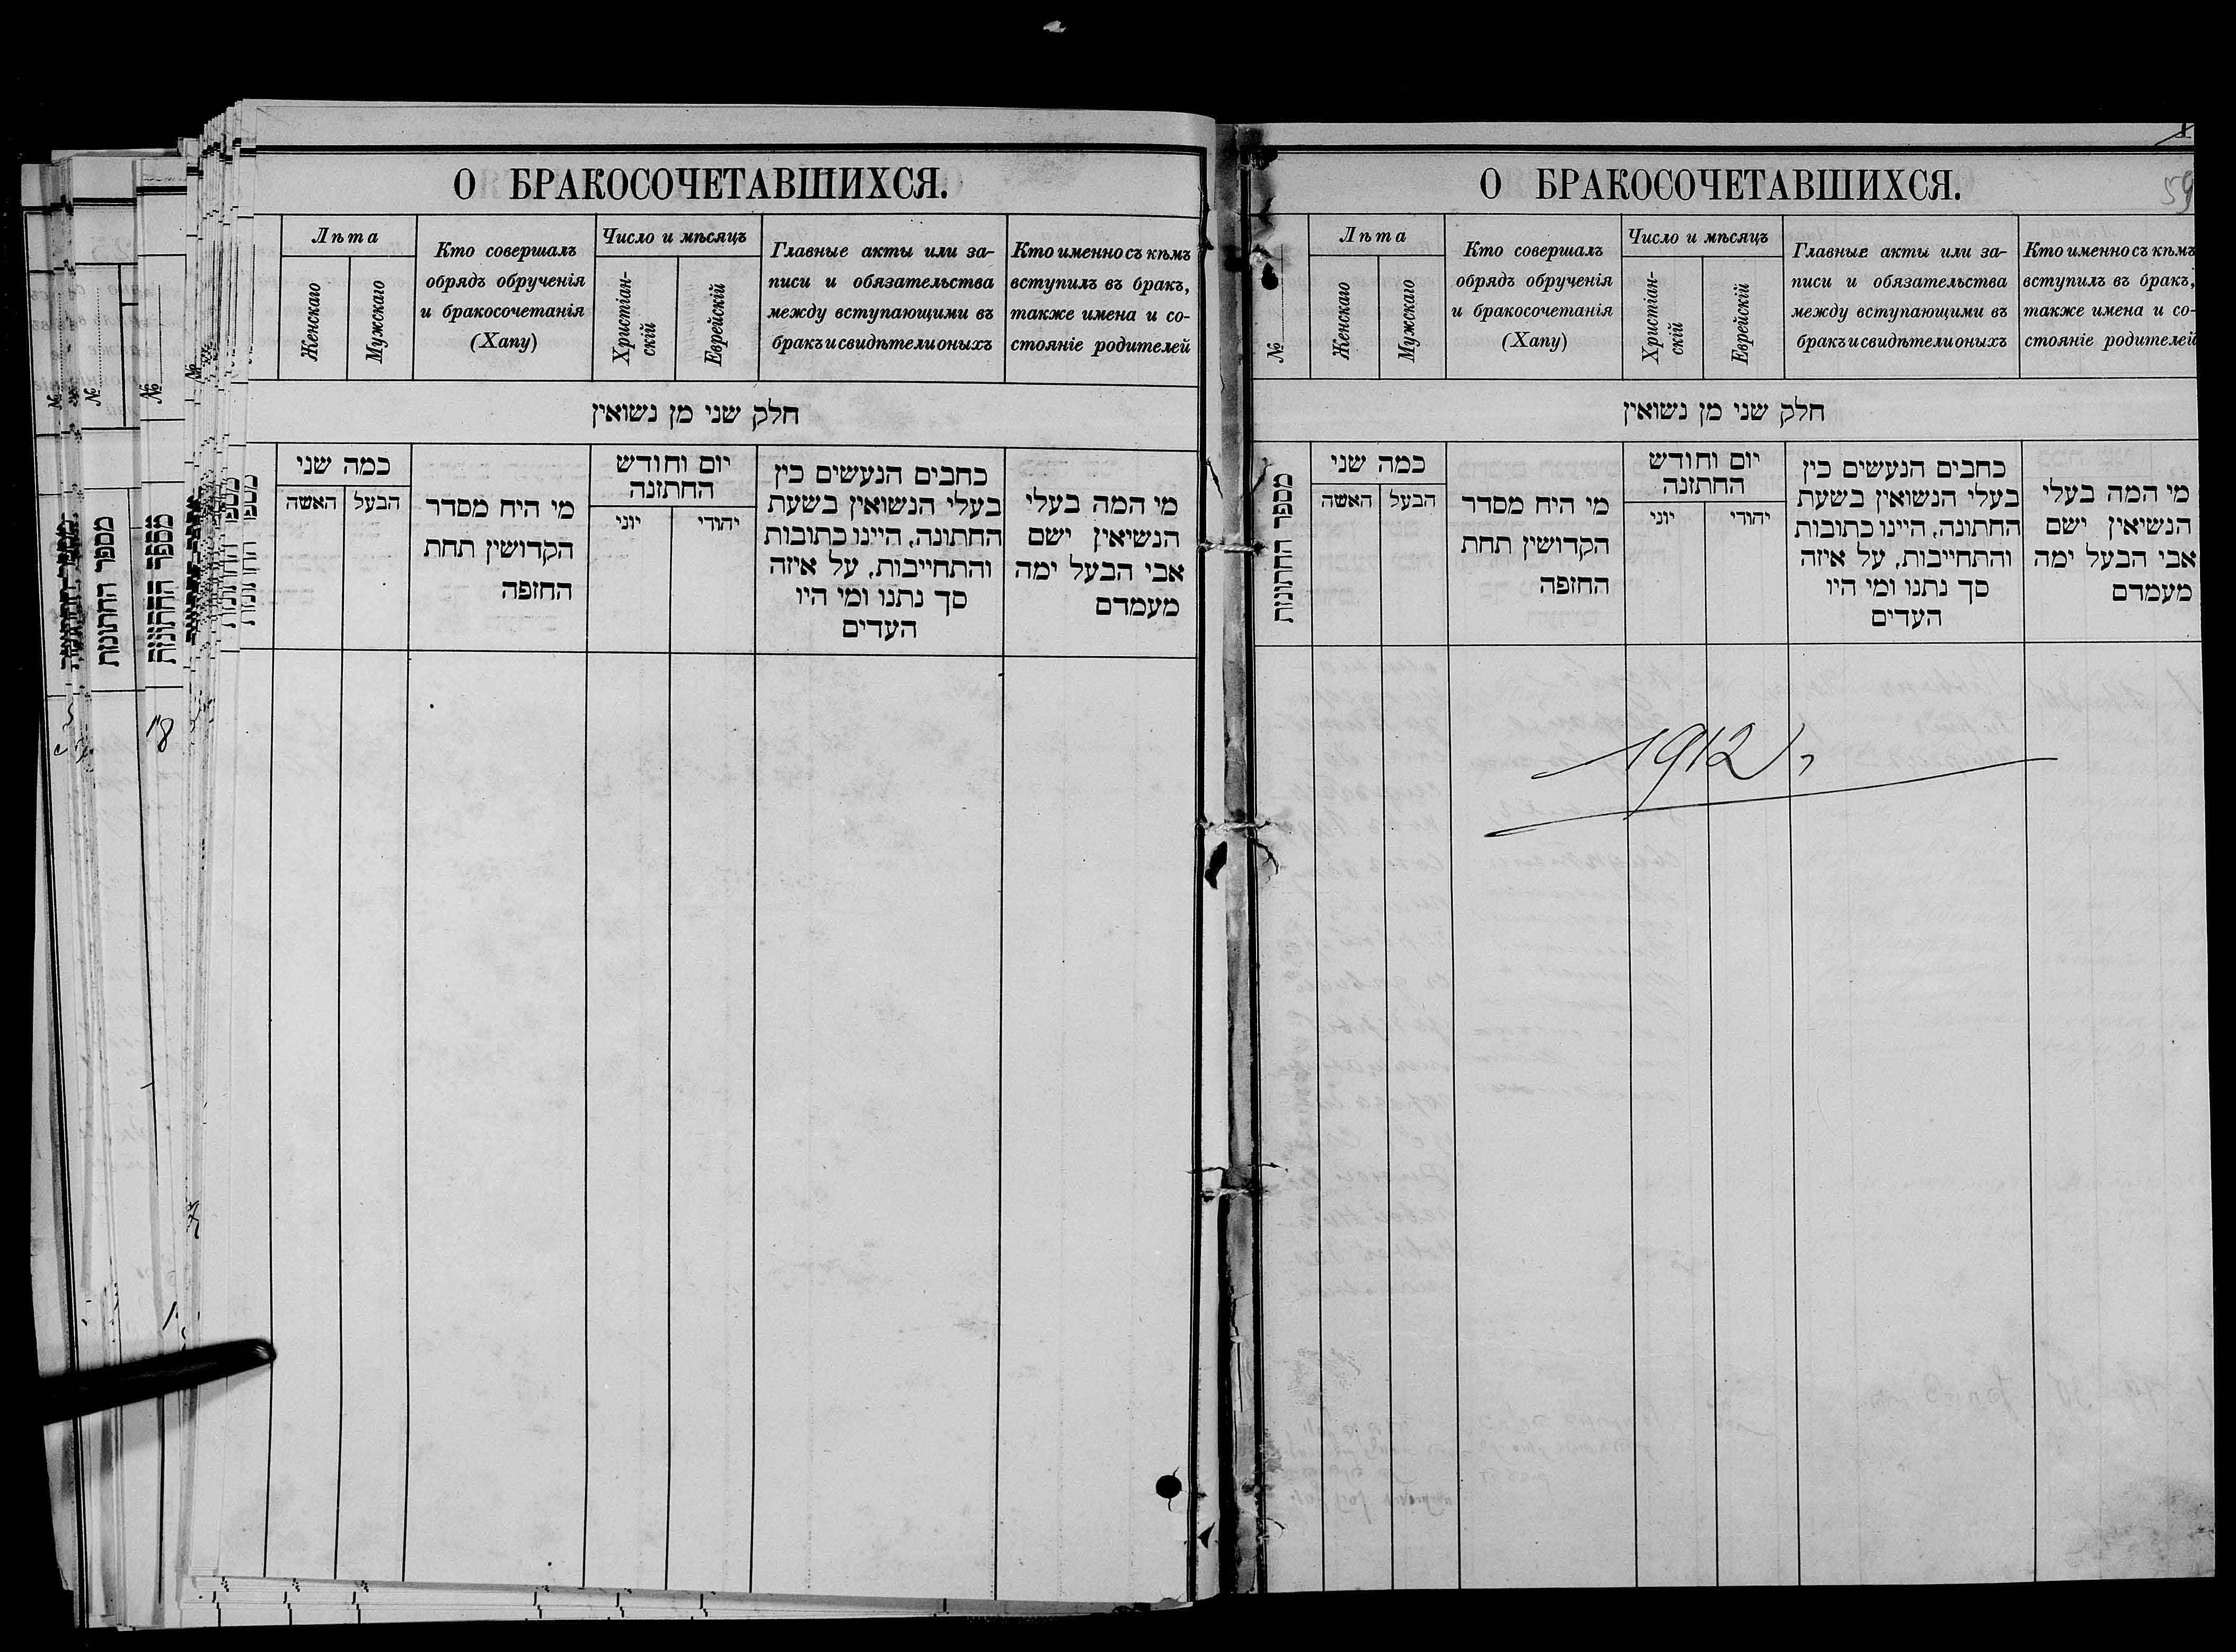 О БРАКОСОЧЕТАВШИХСЯ.
Лѣта
Женскаго
Мужскаго
Кто совершалъ
обрядъ обрученія
и бракосочетанія
(Хапу)
Число и мѣсяцъ
Христіан-
скій
Еврейскій
Главные акты или за-
писи и обязательства
между вступающими въ
бракъ и свидѣтели оныхъ
Кто именно съ кѣмъ
вступилъ въ бракъ,
также имена и со-
стояніе родителей
חלק שני מן נשואין
כמה שני
הבעל
האשה
מי היח מסדר
הקדושין תחת
החזפה
יום וחודש
החתזנה
יהודי
יוני
כחבים הנעשים כין
בעלי הנשואין בשעת
החתונה, היינו כתובות
והתחייבות, על איזה
סך נתנו ומי היו
העדים
מי המה בעלי
הנשיאין ישם
אבי הבעל ימה
מעמדם
№
№
№
מספר החתונות
מספר החתונות
18
О БРАКОСОЧЕТАВШИХСЯ.
59
№
Лѣта
Женскаго
Мужскаго
Кто совершалъ
обрядъ обрученія
и бракосочетанія
(Хапу)
Число и мѣсяцъ
Христіан-
скій
Еврейскій
Главные акты или за-
писи и обязательства
между вступающими въ
бракъ и свидѣтели оныхъ
Кто именно съ кѣмъ
вступилъ въ бракъ,
также имена и со-
стояніе родителей
חלק שני מן נשואין
מספר החתונות
כמה שני
הבעל
האשה
מי היח מסדר
הקדושין תחת
החזפה
יום וחודש
החתזנה
יהודי
יוני
כחבים הנעשים כין
בעלי הנשואין בשעת
החתונה, היינו כתובות
והתחייבות, על איזה
סך נתנו ומי היו
העדים
מי המה בעלי
הנשיאין ישם
אבי הבעל ימה
מעמדם
1912 г